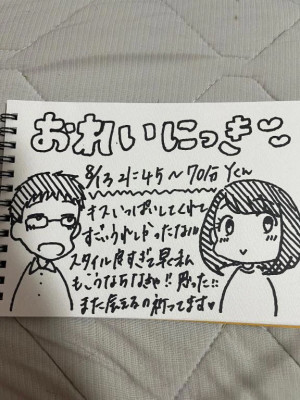 おれいにっき
8/13 21:45〜70分 Yくん
キスいっぱいしてくれて
すごいうれしかったなぁ!!!
スタイル良すぎて早く私
もこうならなきゃ!!思った!!
また会えるの祈ってます♥